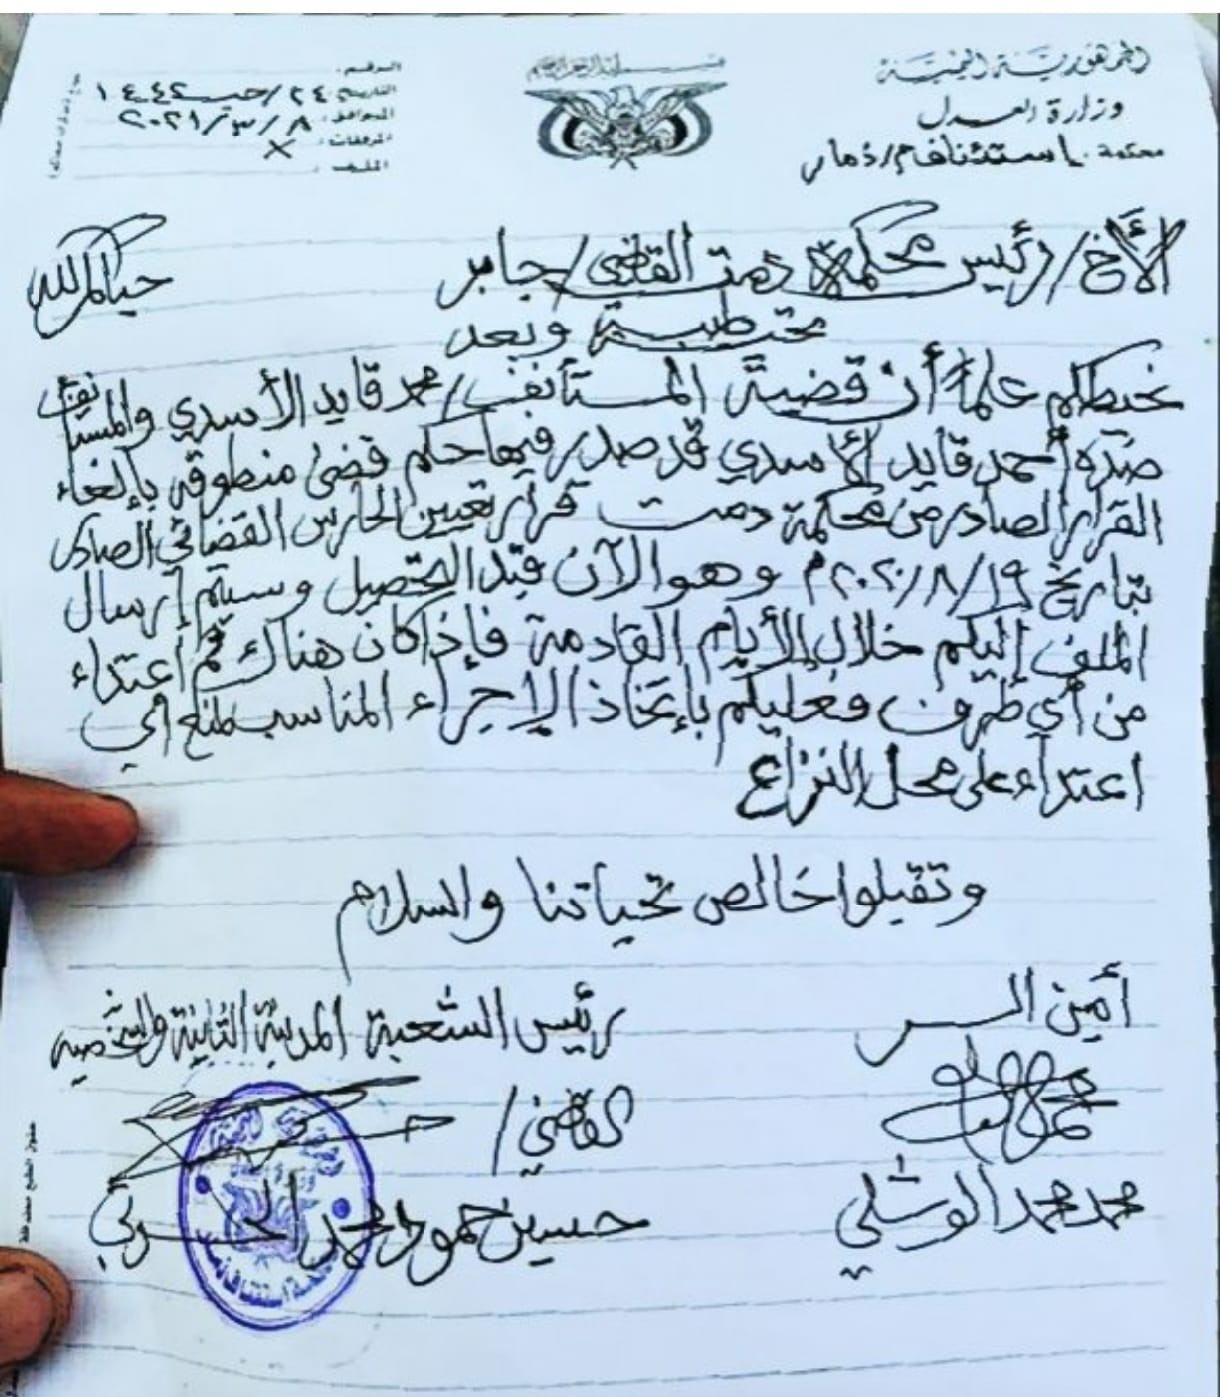 الجمهورية اليمنية
وزارة العدل
محكمة استئناف م/ذمار
بسم الله الرحمن الرحيم
الرقم:
التاريخ: ٢٤/رجب ١٤٤٢
الموافق: ٨/٣/٢٠٢١
المرفقات: X
الملف:
الأخ/رئيس محكمة دمت القاضي/جابر
حياكم الله
وبعد
نحيطكم علماً أن قضية المستأنف/محمد قايد الأسدي والمستأنف
ضده أحمد قايد الأسدي قد صدر فيها حكم قضى منطوقه بإلغاء
القرار الصادر من محكمة دمت قرار تعيين الحارس القضائي الصادر
بتاريخ ١٩/٨/٢٠٢٠م وهو الآن قيد التحصيل وسيتم إرسال
الملف إليكم خلال الأيام القادمة فإذا كان هناك ثم اعتداء
من أي طرف فعليكم بإتخاذ الإجراء المناسب لمنع أي
اعتداء على محل النزاع
وتقبلوا خالص تحياتنا والسلام
أمين السر
محمد محمد الوشلي
رئيس الشعبة المدنية الثانية والشخصية
القاضي/
حسين حمود محمد الحربي